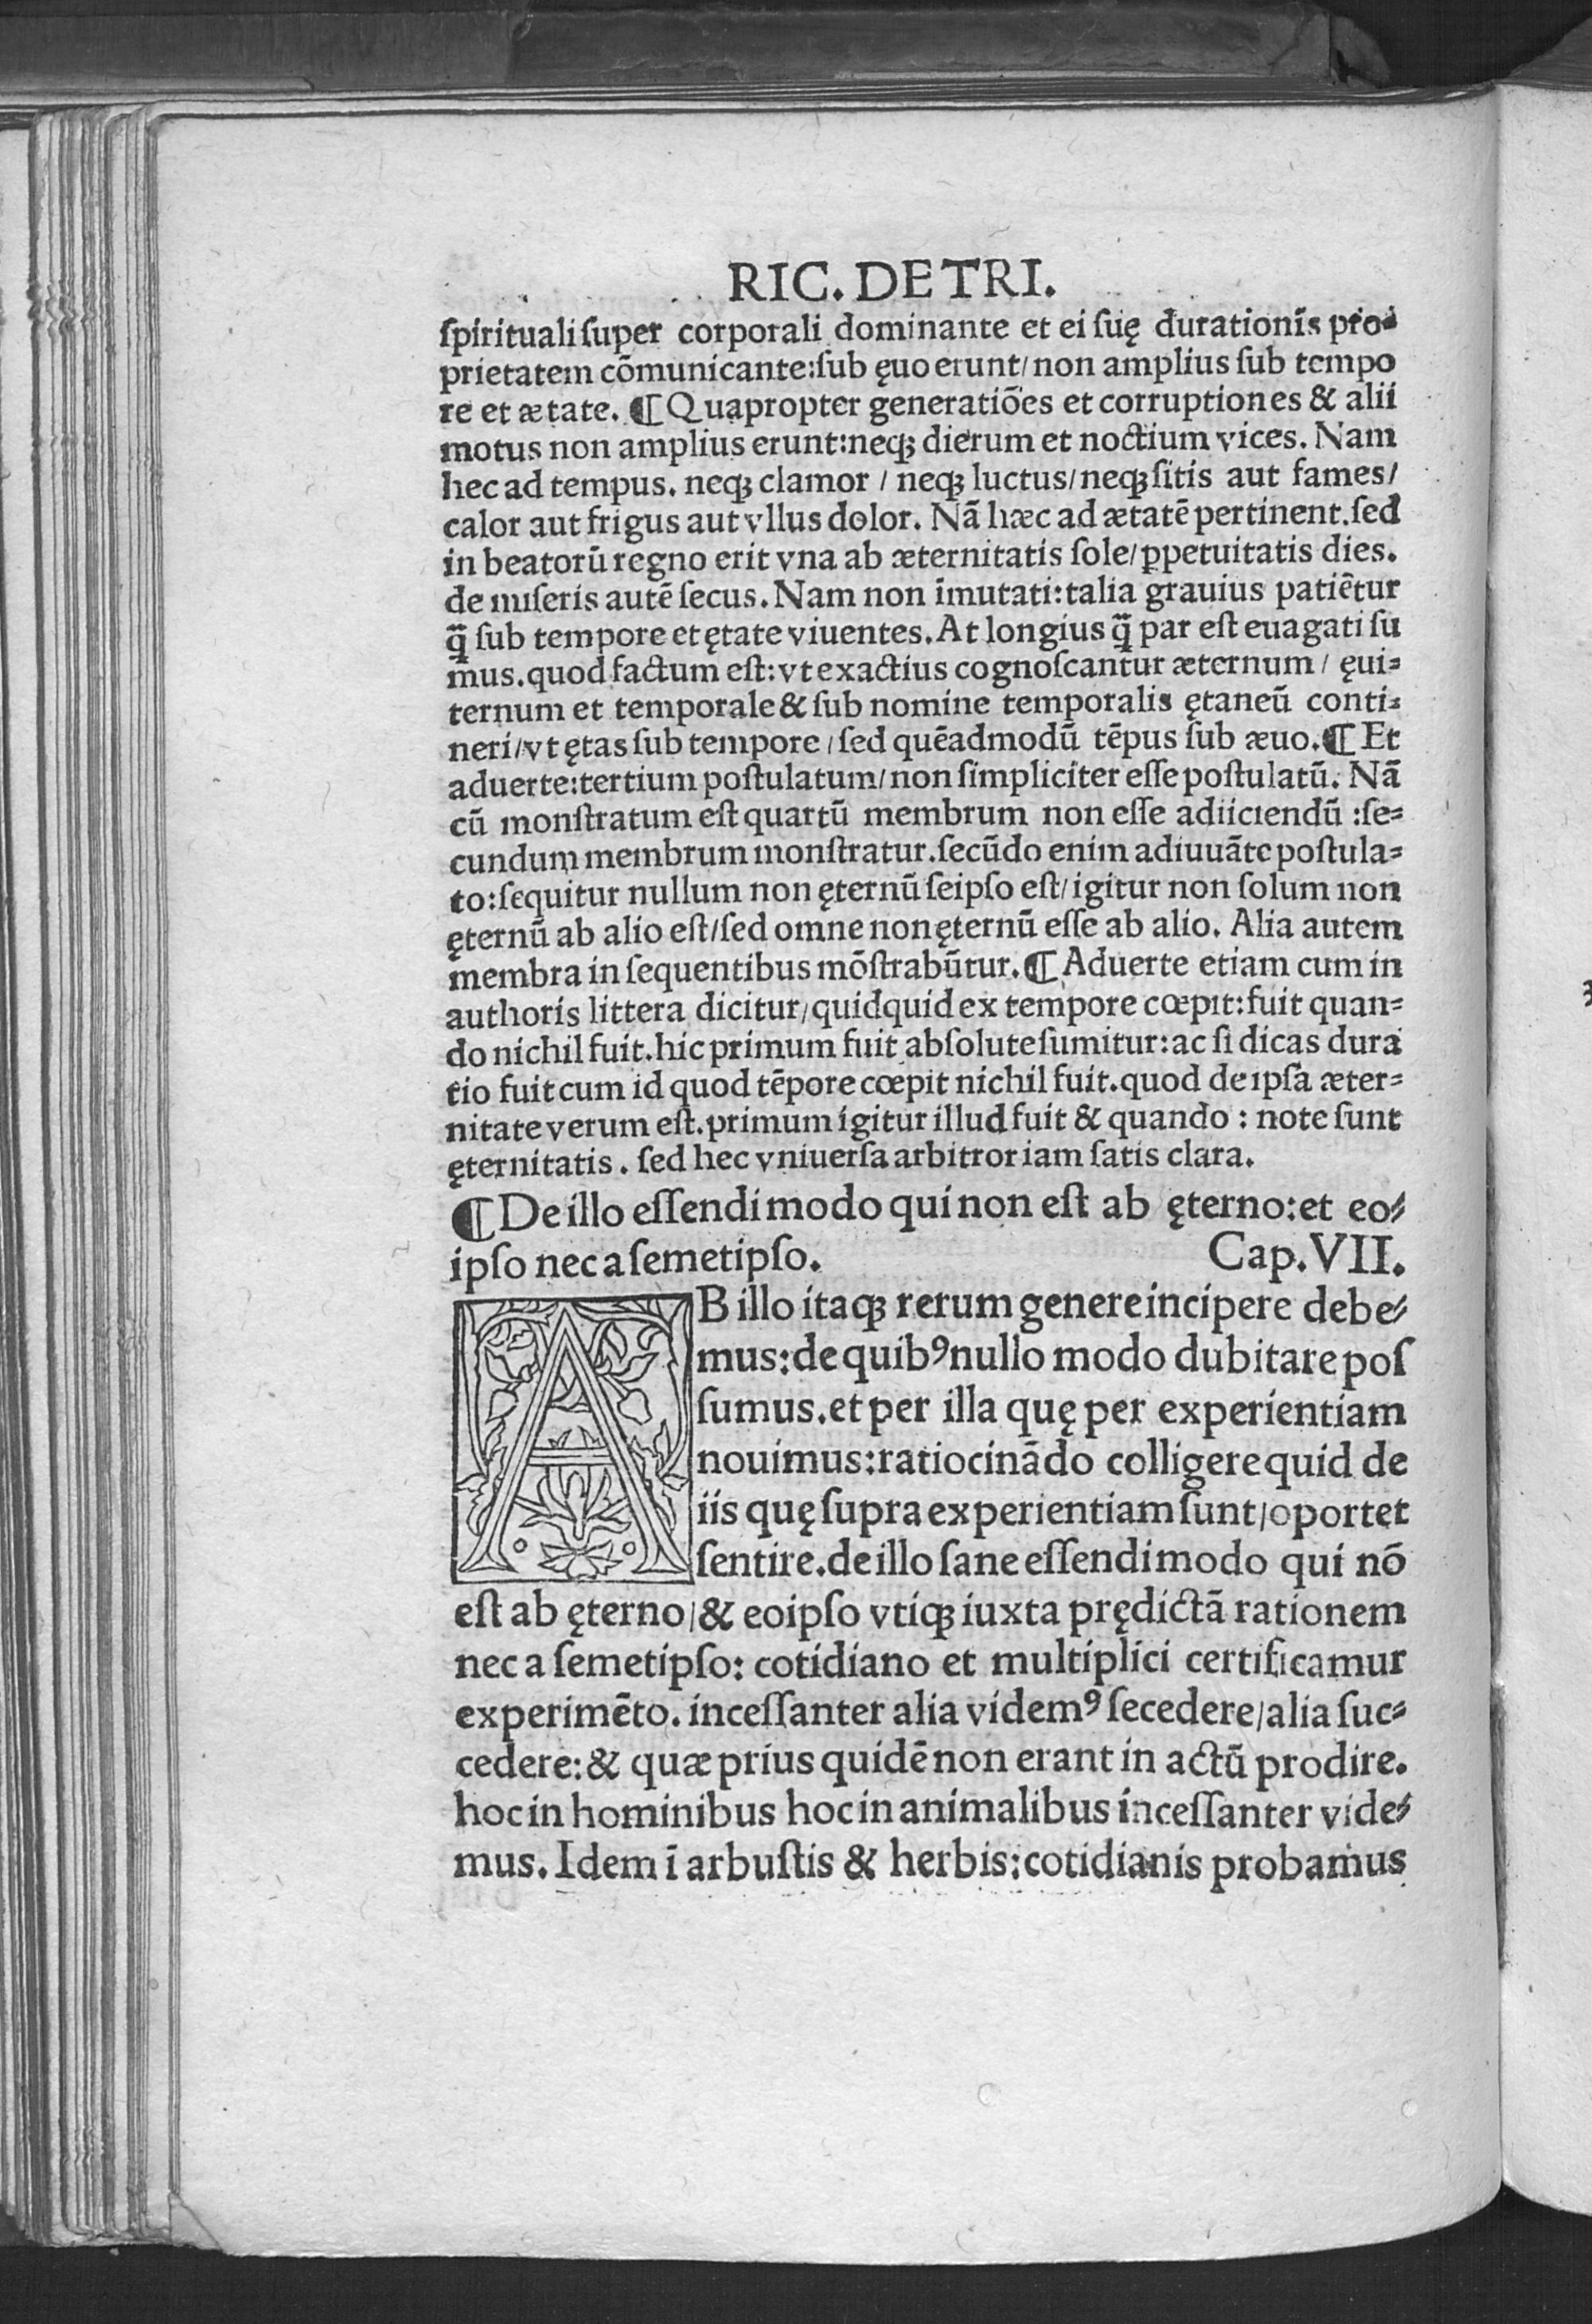 RIC. DE TRI.
ſpirituali ſuper corporali dominante et ei ſuę durationis pro⸗
prietatem cōmunicante:ſub ęuo erunt/ non amplius ſub tempo
re et ætate. ¶ Quapropter generatiōes et corruptiones & alii
motus non amplius erunt:neqꝫ dierum et noctium vices. Nam
hec ad tempus. neqꝫ clamor / neqꝫ luctus/ neqꝫ ſitis aut fames/
calor aut frigus aut vllus dolor. Nā hæc ad ætatē pertinent.ſed
in beatorū regno erit vna ab æternitatis ſole/ ꝑpetuitatis dies.
de miſeris autē ſecus. Nam non īmutati:talia grauius patiētur
q̄ ſub tempore et ętate viuentes. At longius q̄ par eſt euagati ſu
mus.quod factum eſt: vt exactius cognoſcantur æternum / ęui⸗
ternum et temporale & ſub nomine temporalis ętaneū conti⸗
neri/vt ętas ſub tempore / ſed quēadmodū tēpus ſub æuo.¶ Et
aduerte:tertium poſtulatum/ non ſimpliciter eſſe poſtulatū. Nā
cū monſtratum eſt quartū membrum non eſſe adiiciendū :ſe⸗
cundum membrum monſtratur.ſecūdo enim adiuuāte poſtula⸗
to:ſequitur nullum non ęternū ſeipſo eſt/ igitur non ſolum non
ęternū ab alio eſt/ſed omne non ęternū eſſe ab alio. Alia autem
membra in ſequentibus mōſtrabūtur.¶ Aduerte etiam cum in
authoris littera dicitur/ quidquid ex tempore cœpit:fuit quan⸗
do nichil fuit.hic primum fuit abſolute ſumitur:ac ſi dicas dura
tio fuit cum id quod tēpore cœpit nichil fuit.quod de ipſa æter⸗
nitate verum eſt.primum igitur illud fuit & quando : note ſunt
ęternitatis. ſed hec vniuerſa arbitror iam ſatis clara.
¶ De illo eſſendi modo qui non eſt ab ęterno:et eo⸗
ipſo nec a ſemetipſo. Cap. VII.
AB illo itaqꝫ rerum genere incipere debe⸗
mus:de quibꝰ nullo modo dubitare poſ
ſumus.et per illa quę per experientiam
nouimus:ratiocinādo colligere quid de
iis quę ſupra experientiam ſunt/oportet
ſentire.de illo ſane eſſendi modo qui nō
eſt ab ęterno/& eoipſo vtiqꝫ iuxta prędictā rationem
nec a ſemetipſo: cotidiano et multiplici certificamur
experimēto. inceſſanter alia videmꝰ ſecedere/alia ſuc⸗
cedere: & quæ prius quidē non erant in actū prodire.
hoc in hominibus hoc in animalibus inceſſanter vide⸗
mus. Idem ī arbuſtis & herbis:cotidianis probamus